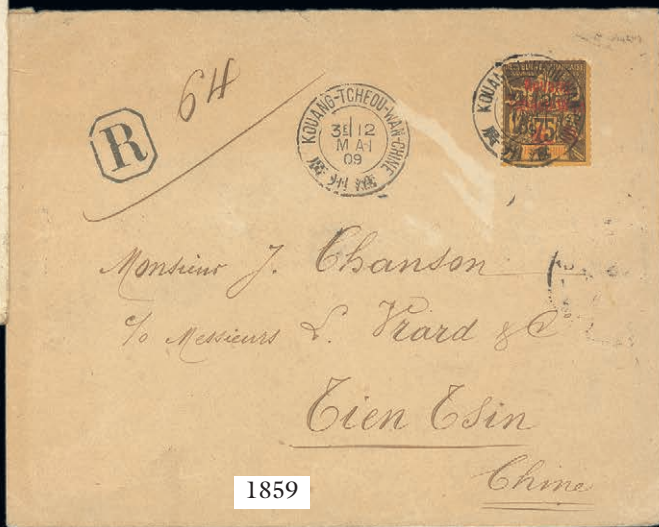 R
64
KOUANG-TCHEOU-WAN-CHINE
3E 12
MAI
09
廣州灣
KOUAN
75
Monsieur J. Chanson
c/o Messieurs L. Vrard & Co
Tien Tsin
Chine
1859